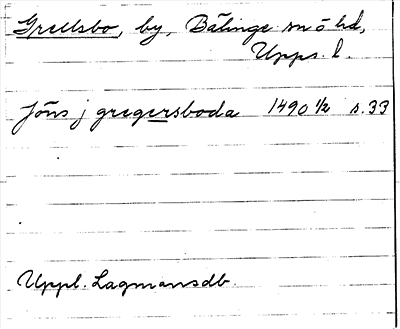 Grellsbo, by, Bälinge sn o hd,
Upps. l.
Jöns j gregersboda 1490 1/2 s. 33
Uppl. Lagmansdb.